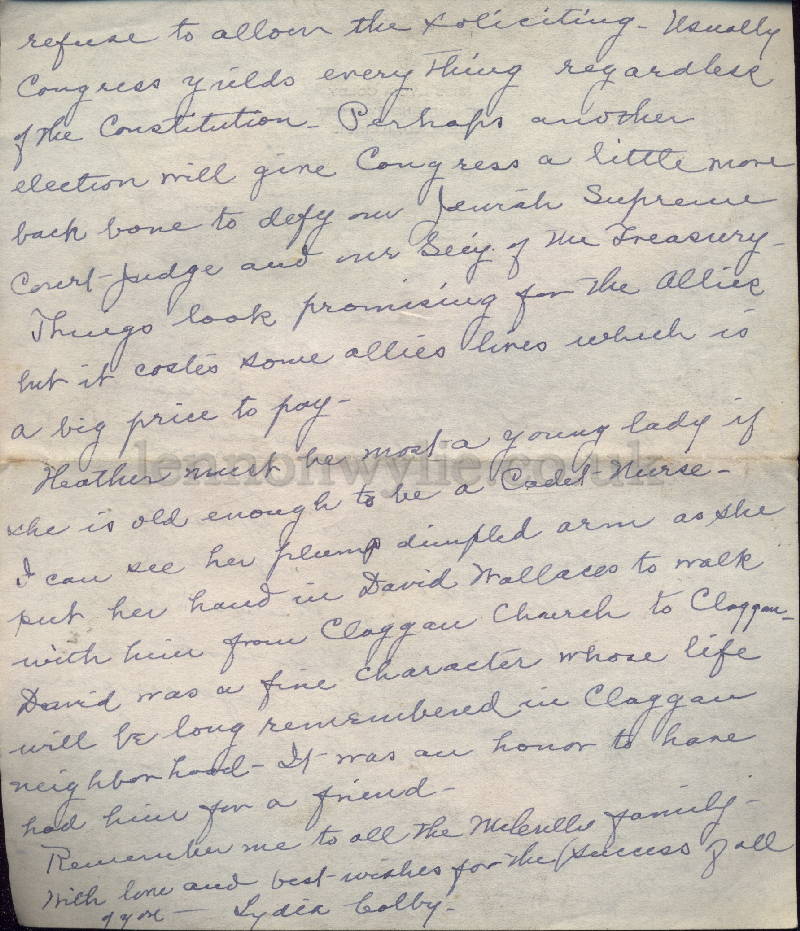 refuse to allow the soliciting - Usually
Congress yields everything regardless
of the Constitution - Perhaps another
election will give Congress a little more
back bone to defy our Jewish Supreme
Court Judge and our Sec'y. of the Treasury -
Things look promising for the Allies
but it costs some allies lives which is
a big price to pay -
lennonwylie.co.uk
Heather must be most a young lady if
she is old enough to be a Cadet Nurse -
I can see her plump dimpled arm as she
put her hand in David Wallaces to walk
with him from Claggan Church to Claggan -
David was a fine character whose life
will be long remembered in Claggan
neighborhood - It was an honor to have
had him for a friend -
Remember me to all the family -
With love and best wishes for the success of all
of you - Lydia Colby -